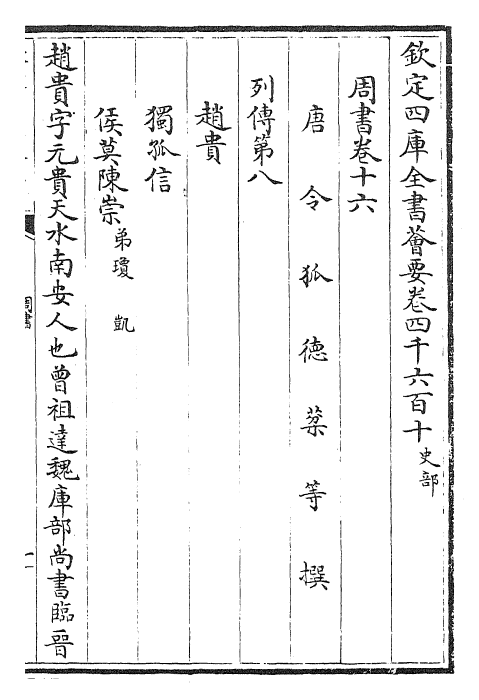 欽定四庫全書薈要卷四千六百十 史部
周書卷十六
唐令狐德棻等撰
列傳第八
趙貴
獨孤信
侯莫陳崇 弟瓊 凱
趙貴字元貴天水南安人也曾祖達魏庫部尚書臨晉
周書